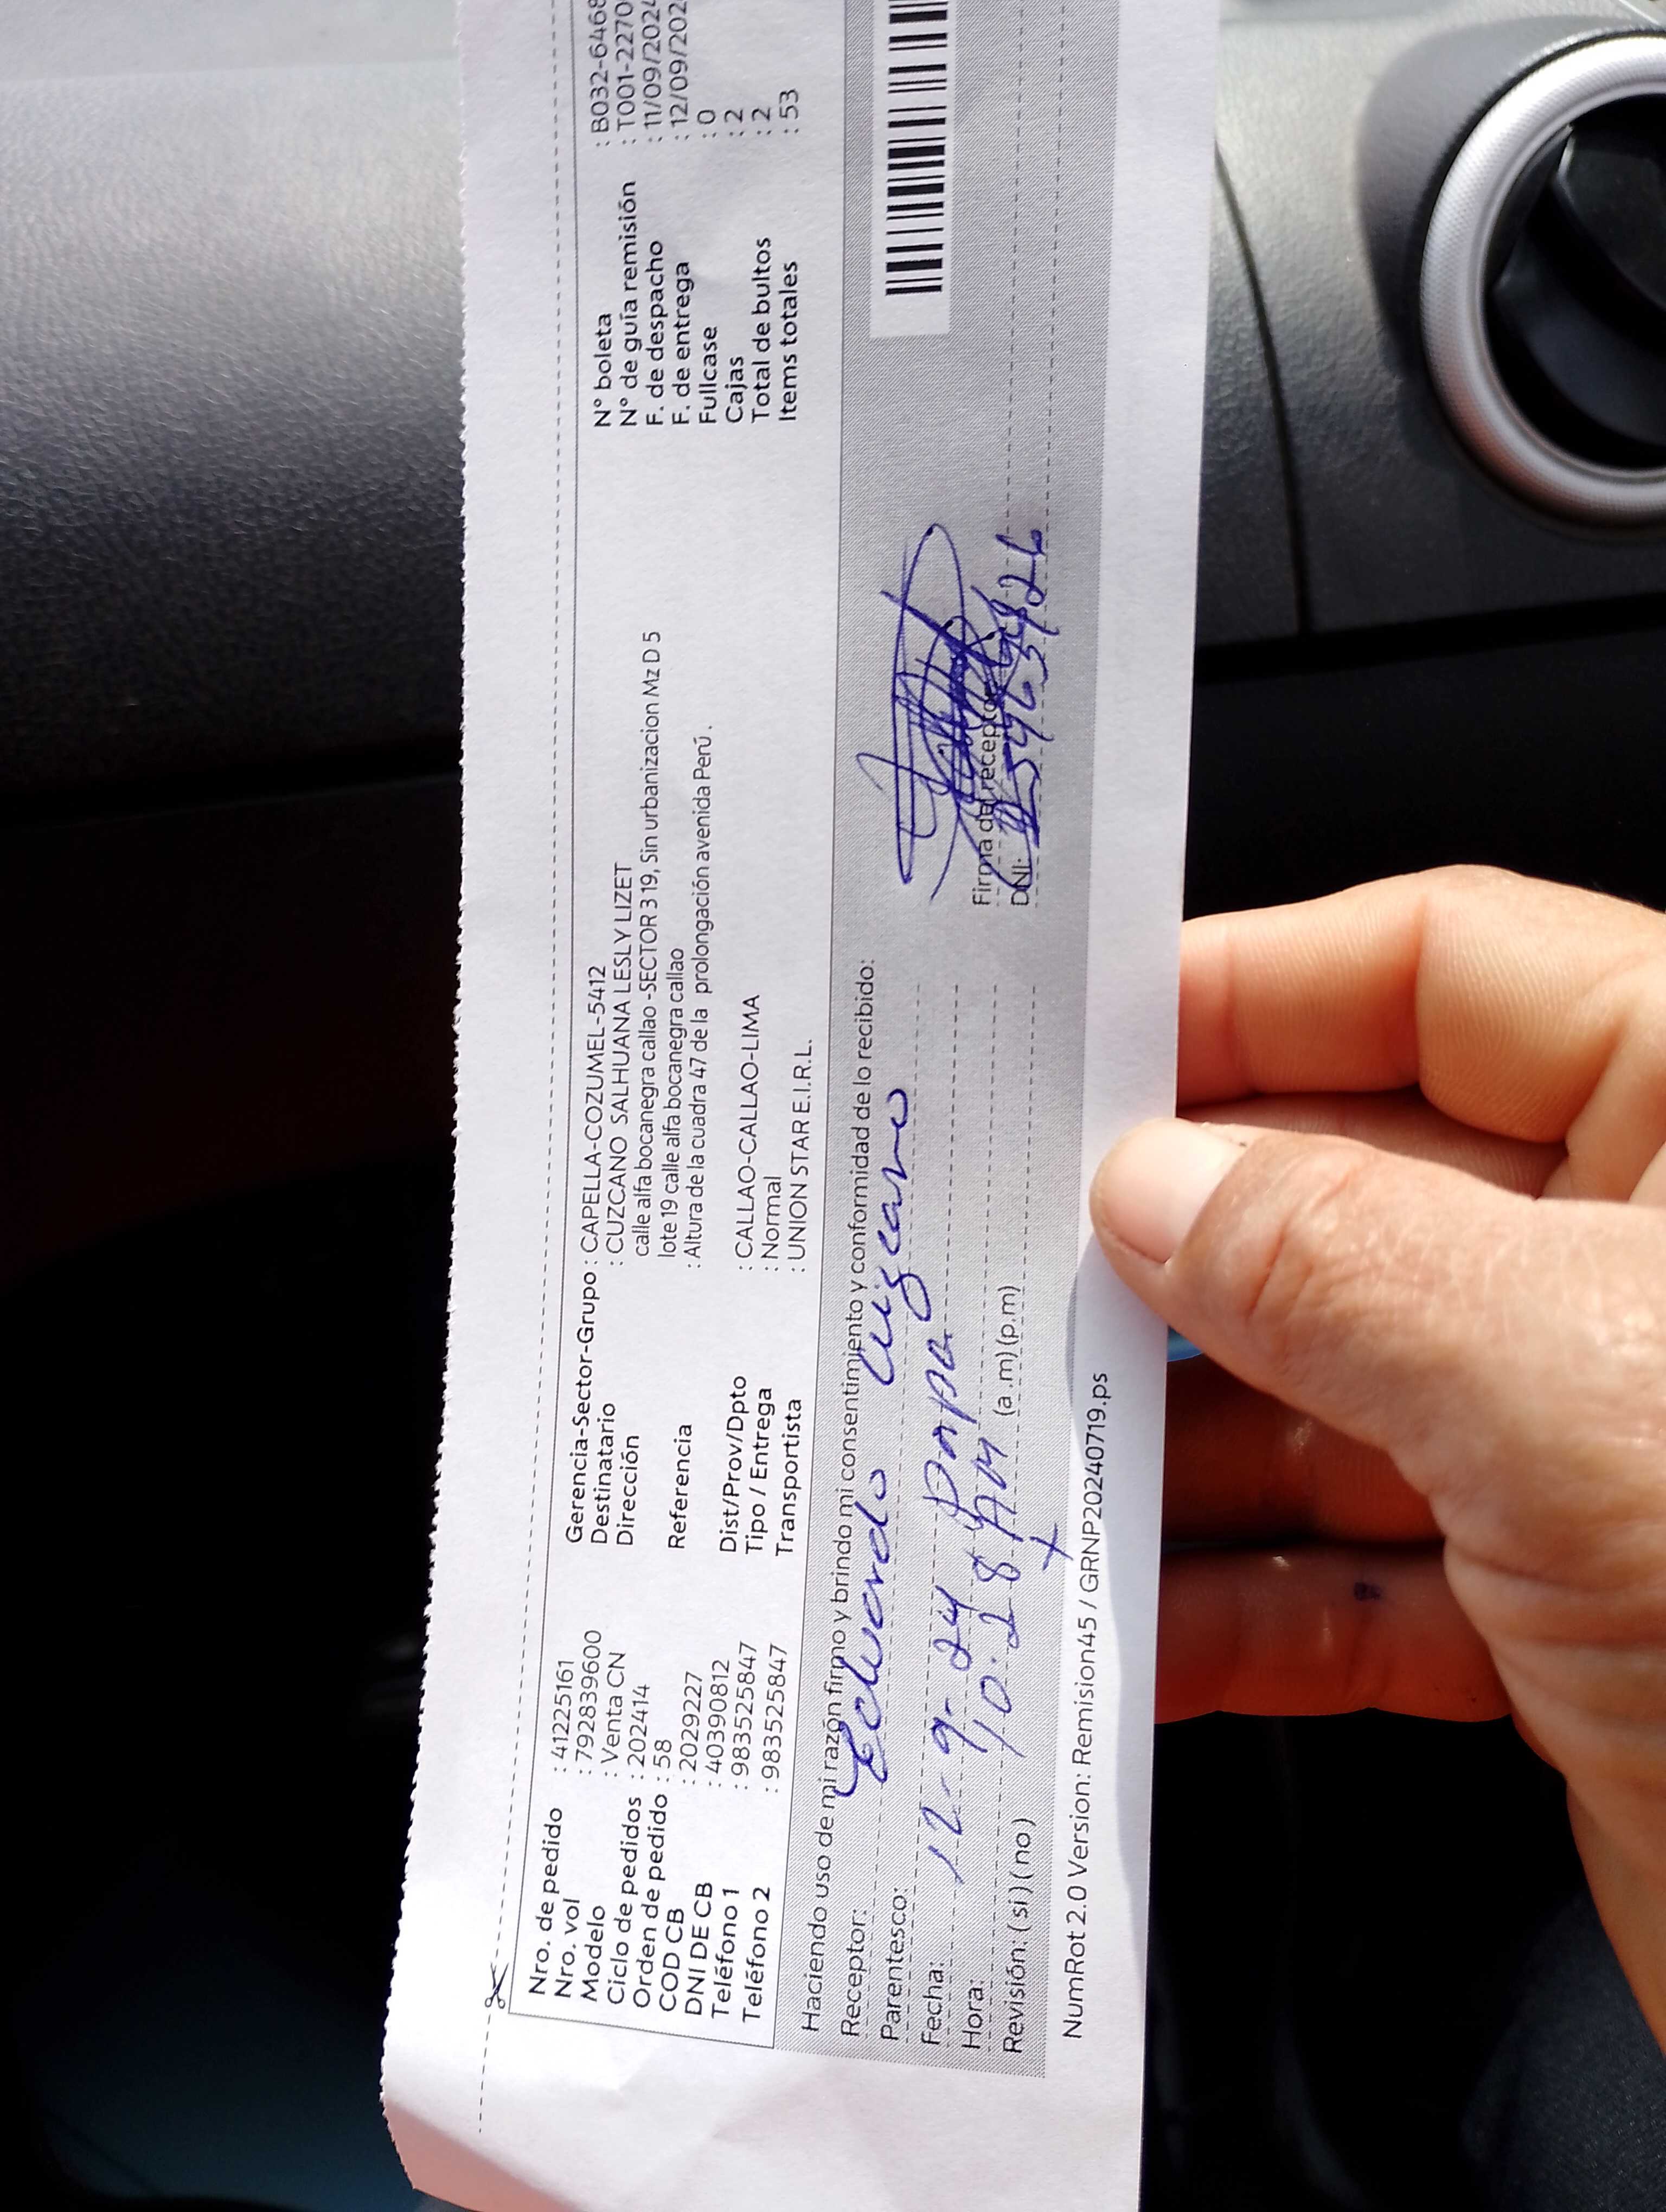 Nro. de pedido : 41225161
Nro. vol : 792839600
Modelo : Venta CN
Ciclo de pedidos : 202414
Orden de pedido : 58
COD CB : 2029227
DNI DE CB : 40390812
Teléfono 1 : 983525847
Teléfono 2 : 983525847
Gerencia-Sector-Grupo : CAPELLA-COZUMEL-5412
Destinatario : CUZCANO SALHUANA LESLY LIZET
Dirección calle alfa bocanegra callao -SECTOR 3 19, Sin urbanizacion Mz D 5
lote 19 calle alfa bocanegra callao
Referencia : Altura de la cuadra 47 de la prolongación avenida Perú .
Dist/Prov/Dpto : CALLAO-CALLAO-LIMA
Tipo / Entrega : Normal
Transportista : UNION STAR E.I.R.L.
N° boleta : B032-6468
N° de guía remisión : T001-2270
F. de despacho : 11/09/2024
F. de entrega : 12/09/202
Fullcase : 0
Cajas : 2
Total de bultos : 2
Items totales : 53
Haciendo uso de mi razón firmo y brindo mi consentimiento y conformidad de lo recibido:
Receptor: Eduardo Cuzcano
Parentesco: papa
Fecha: 12-9-24
Hora: 10:28 AM (a.m) (p.m)
Revisión: (si) (no)
Firma del receptor
DNI:
NumRot 2.0 Version: Remision45 / GRNP20240719.ps